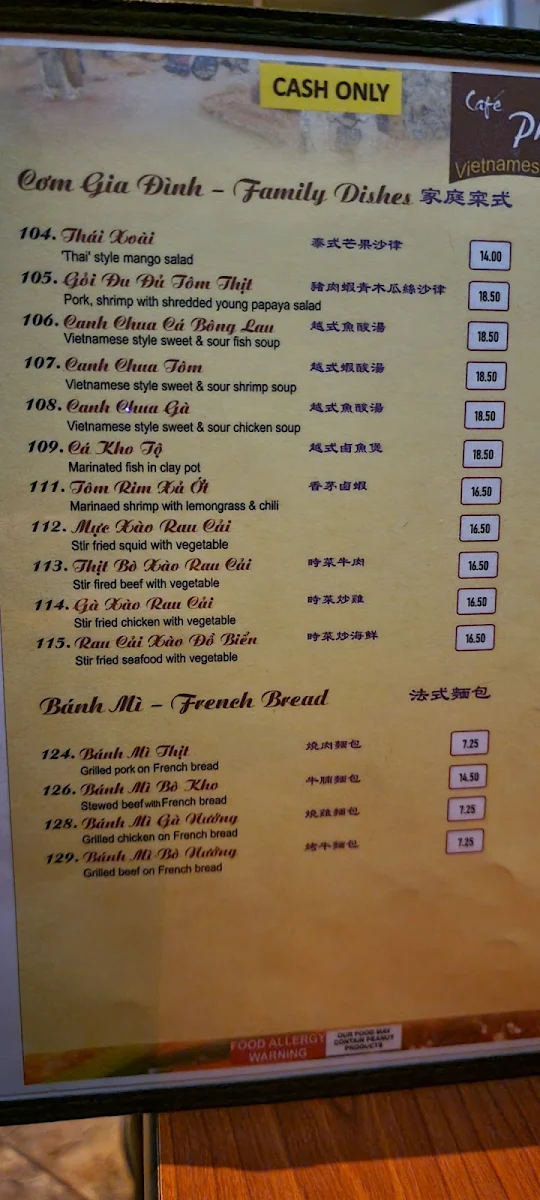 CASH ONLY
Café
Vietnames
Cơm Gia Đình – Family Dishes 家庭菜式
104. Thái Xoài 泰式芒果沙律 14.00
'Thai' style mango salad
105. Gỏi Đu Đủ Tôm Thịt 豬肉蝦青木瓜絲沙律 18.50
Pork, shrimp with shredded young papaya salad
106. Canh Chua Cá Bông Lau 越式魚酸湯 18.50
Vietnamese style sweet & sour fish soup
107. Canh Chua Tôm 越式蝦酸湯 18.50
Vietnamese style sweet & sour shrimp soup
108. Canh Chua Gà 越式魚酸湯 18.50
Vietnamese style sweet & sour chicken soup
109. Cá Kho Tộ 越式卤魚煲 18.50
Marinated fish in clay pot
111. Tôm Rim Xả Ớt 香茅卤蝦 16.50
Marinaed shrimp with lemongrass & chili
112. Mực Xào Rau Cải 16.50
Stir fried squid with vegetable
113. Thịt Bò Xào Rau Cải 時菜牛肉 16.50
Stir fired beef with vegetable
114. Gà Xào Rau Cải 時菜炒雞 16.50
Stir fried chicken with vegetable
115. Rau Cải Xào Đồ Biển 時菜炒海鮮 16.50
Stir fried seafood with vegetable
Bánh Mì – French Bread 法式麵包
124. Bánh Mì Thịt 燒肉麵包 7.25
Grilled pork on French bread
126. Bánh Mì Bò Kho 牛腩麵包 14.50
Stewed beef with French bread
128. Bánh Mì Gà Nướng 燒雞麵包 7.25
Grilled chicken on French bread
129. Bánh Mì Bò Nướng 烤牛麵包 7.25
Grilled beef on French bread
FOOD ALLERGY WARNING
OUR FOOD MAY
CONTAIN PEANUT
PRODUCTS